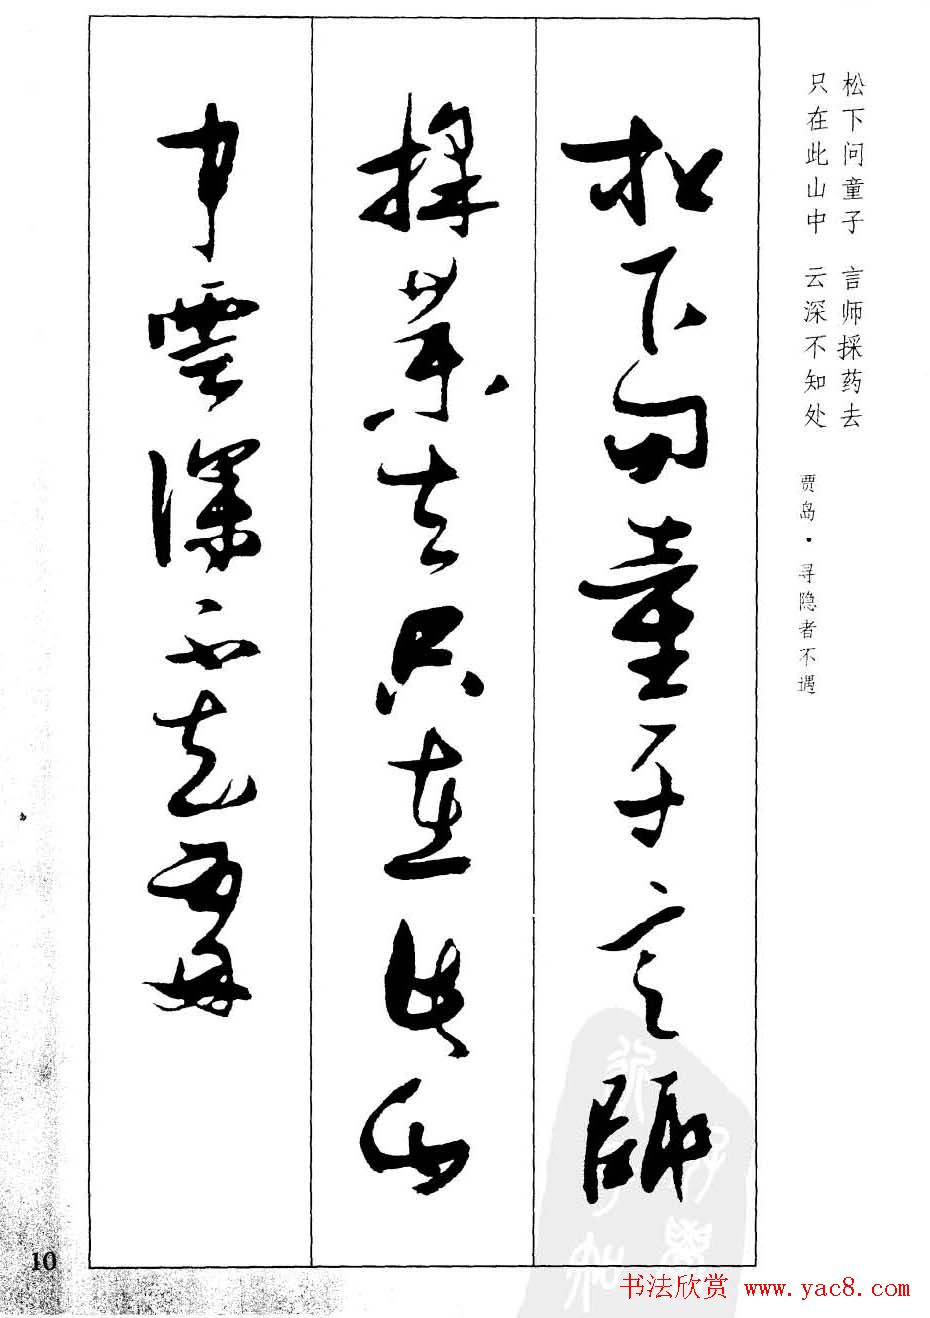 松下问童子　言师採药去
只在此山中　云深不知处
贾岛·寻隐者不遇
松下问童子言師
採藥去只在此山
中雲深不知處
10
书法欣赏 www.yac8.com